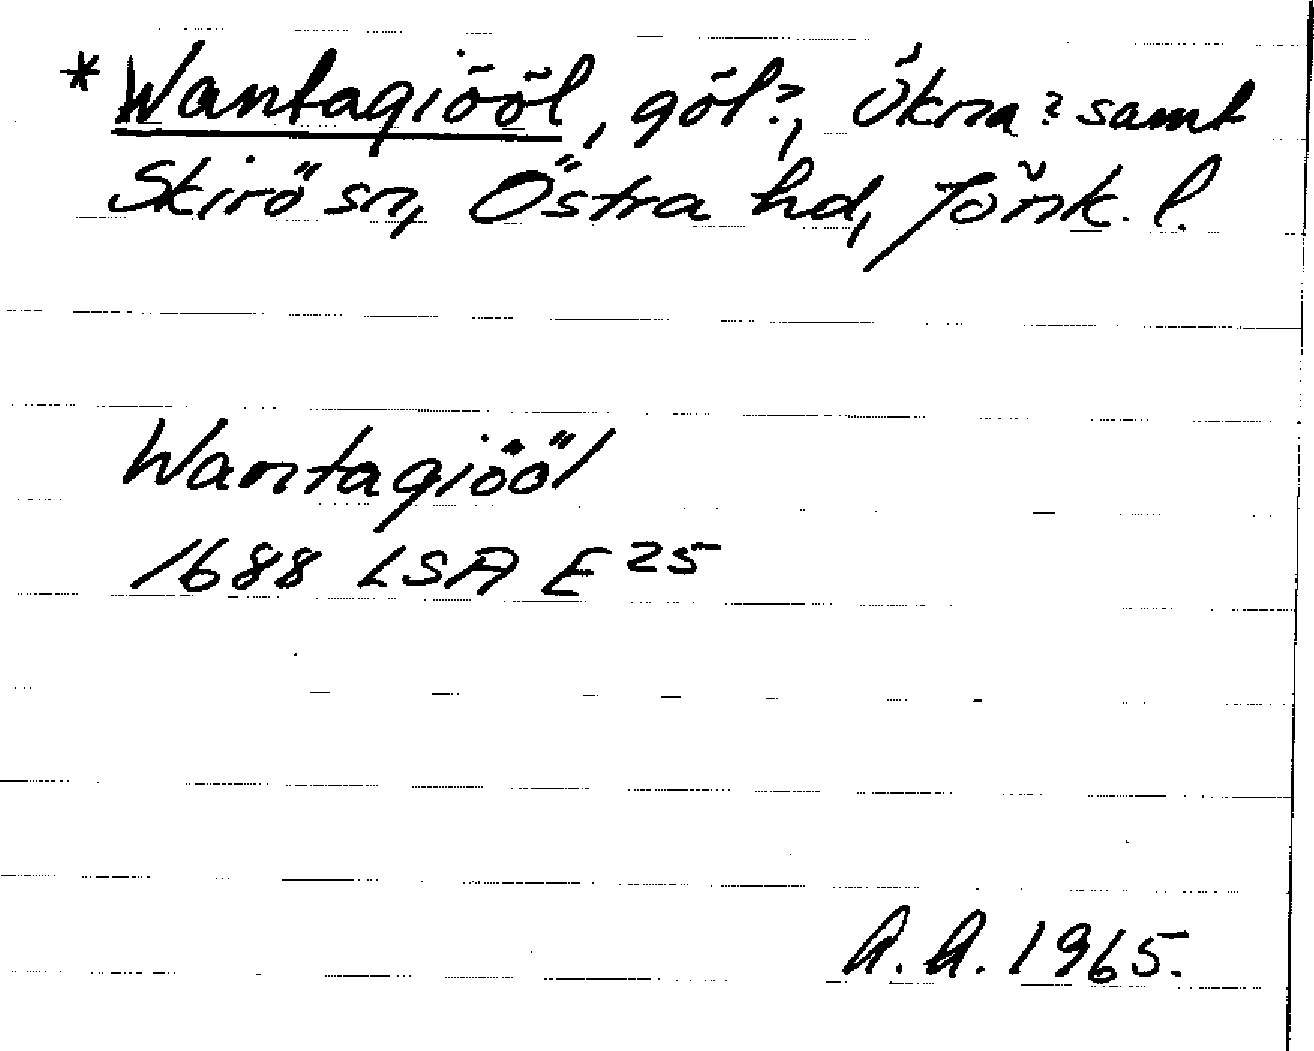 *Wantagiööl, göl?, Ökna? samt
Skirö sn, Östra hd, Jönk. l.
Wantagiööl
1688 LSA E 25
A.A. 1965.